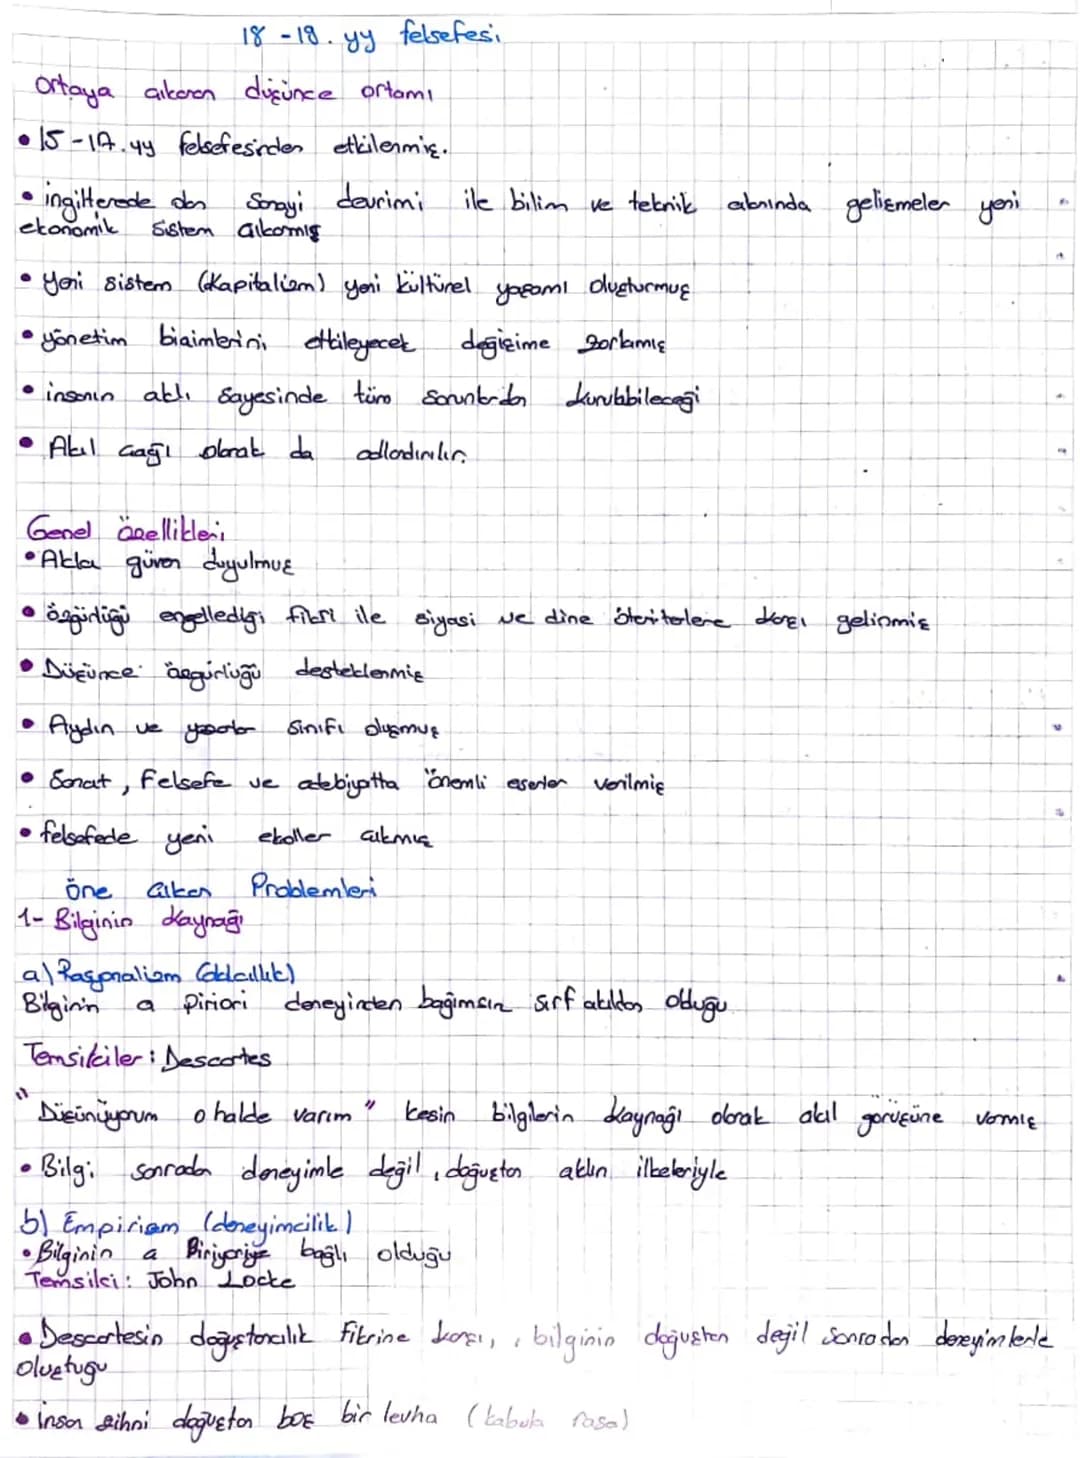 18 - 18. yy felsefesi
Ortaya çıkaran düşünce ortamı
• 15 - 17. yy felsefesinden etkilenmiş.
• ingilterede olan Sanayi devrimi ile bilim ve teknik alanında gelişmeler yeni
ekonomik sistem çıkarmış
• Yeni sistem (Kapitalizm) yeni kültürel yaşamı oluşturmuş
• yönetim biçimlerini etkileyecek değişime zorlamış
• insanın aklı sayesinde tüm sorunlardan kurulabileceği
• Akıl çağı olarak da adlandırılır.
Genel özellikleri
• Akla güven duyulmuş
• özgürlüğü engellediği fikri ile siyasi ve dine otoriterlere karşı gelinmiş
• Düşünce özgürlüğü desteklenmiş
• Aydın ve yazarlar sınıfı oluşmuş
• Sanat, Felsefe ve edebiyatta önemli eserler verilmiş
• felsefede yeni ekoller çıkmış
öne çıkan Problemleri
1- Bilginin Kaynağı
a) Rasyonalizm (akılcılık)
Bilginin a piriori deneyimden bağımsız sırf akıldan olduğu
Temsilciler : Descartes
"Düşünüyorum o halde varım" kesin bilgilerin kaynağı olarak akıl görüşüne varmış
• Bilgi sonradan deneyimle değil, doğuştan aklın ilkeleriyle
b) Empirizm (deneyimcilik)
• Bilginin a Piriyoriye bağlı olduğu
Temsilci : John Locke
• Descartesin doğuştancılık fikrine karşı, , bilginin doğuştan değil sonradan deneyimlerle
oluştuğu
• insan zihni doğuştan boş bir levha (tabula rasa)